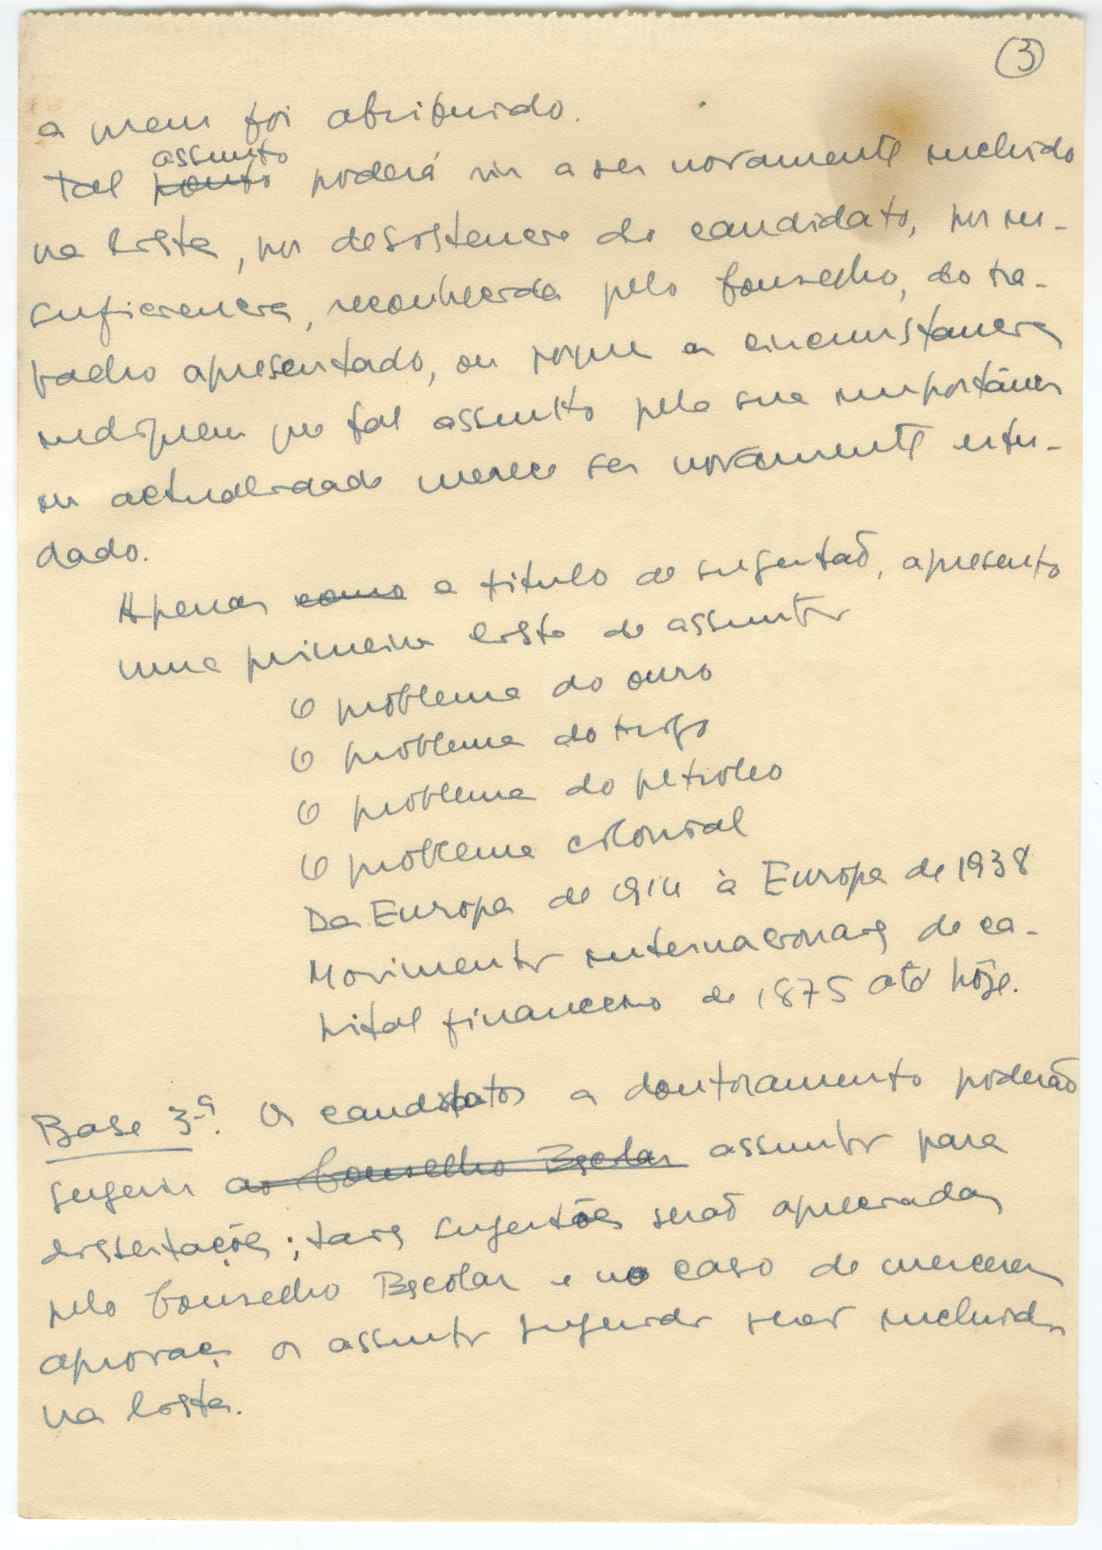 3
a quem foi atribuído.
assunto
Tal ponto poderá vir a ser novamente incluido
na lista, por desistencia do candidato, por in-
suficiencia, reconhecida pelo Conselho, do tra-
balho apresentado, ou porque a circunstancia
indiquem que tal assunto pela sua importância
ou actualidade merece ser novamente estu-
dado.
Apenas como a titulo de sugestaõ, apresento
uma primeira lista de assuntos
O problema do ouro
O problema do trigo
O problema do petroleo
O problema colonial
Da Europa de 1914 à Europa de 1938
Movimentos internacionais de ca-
pital financeiro de 1875 até hôje.
Base 3ª. Os candidatos a doutoramento poderaõ
sugerir ao Conselho Escolar assuntos para
dissertações; tais sugestões seraõ apreciadas
pelo Conselho Escolar e no caso de merecerem
aprovaç os assuntos sugeridos seraõ incluidos
na lista.